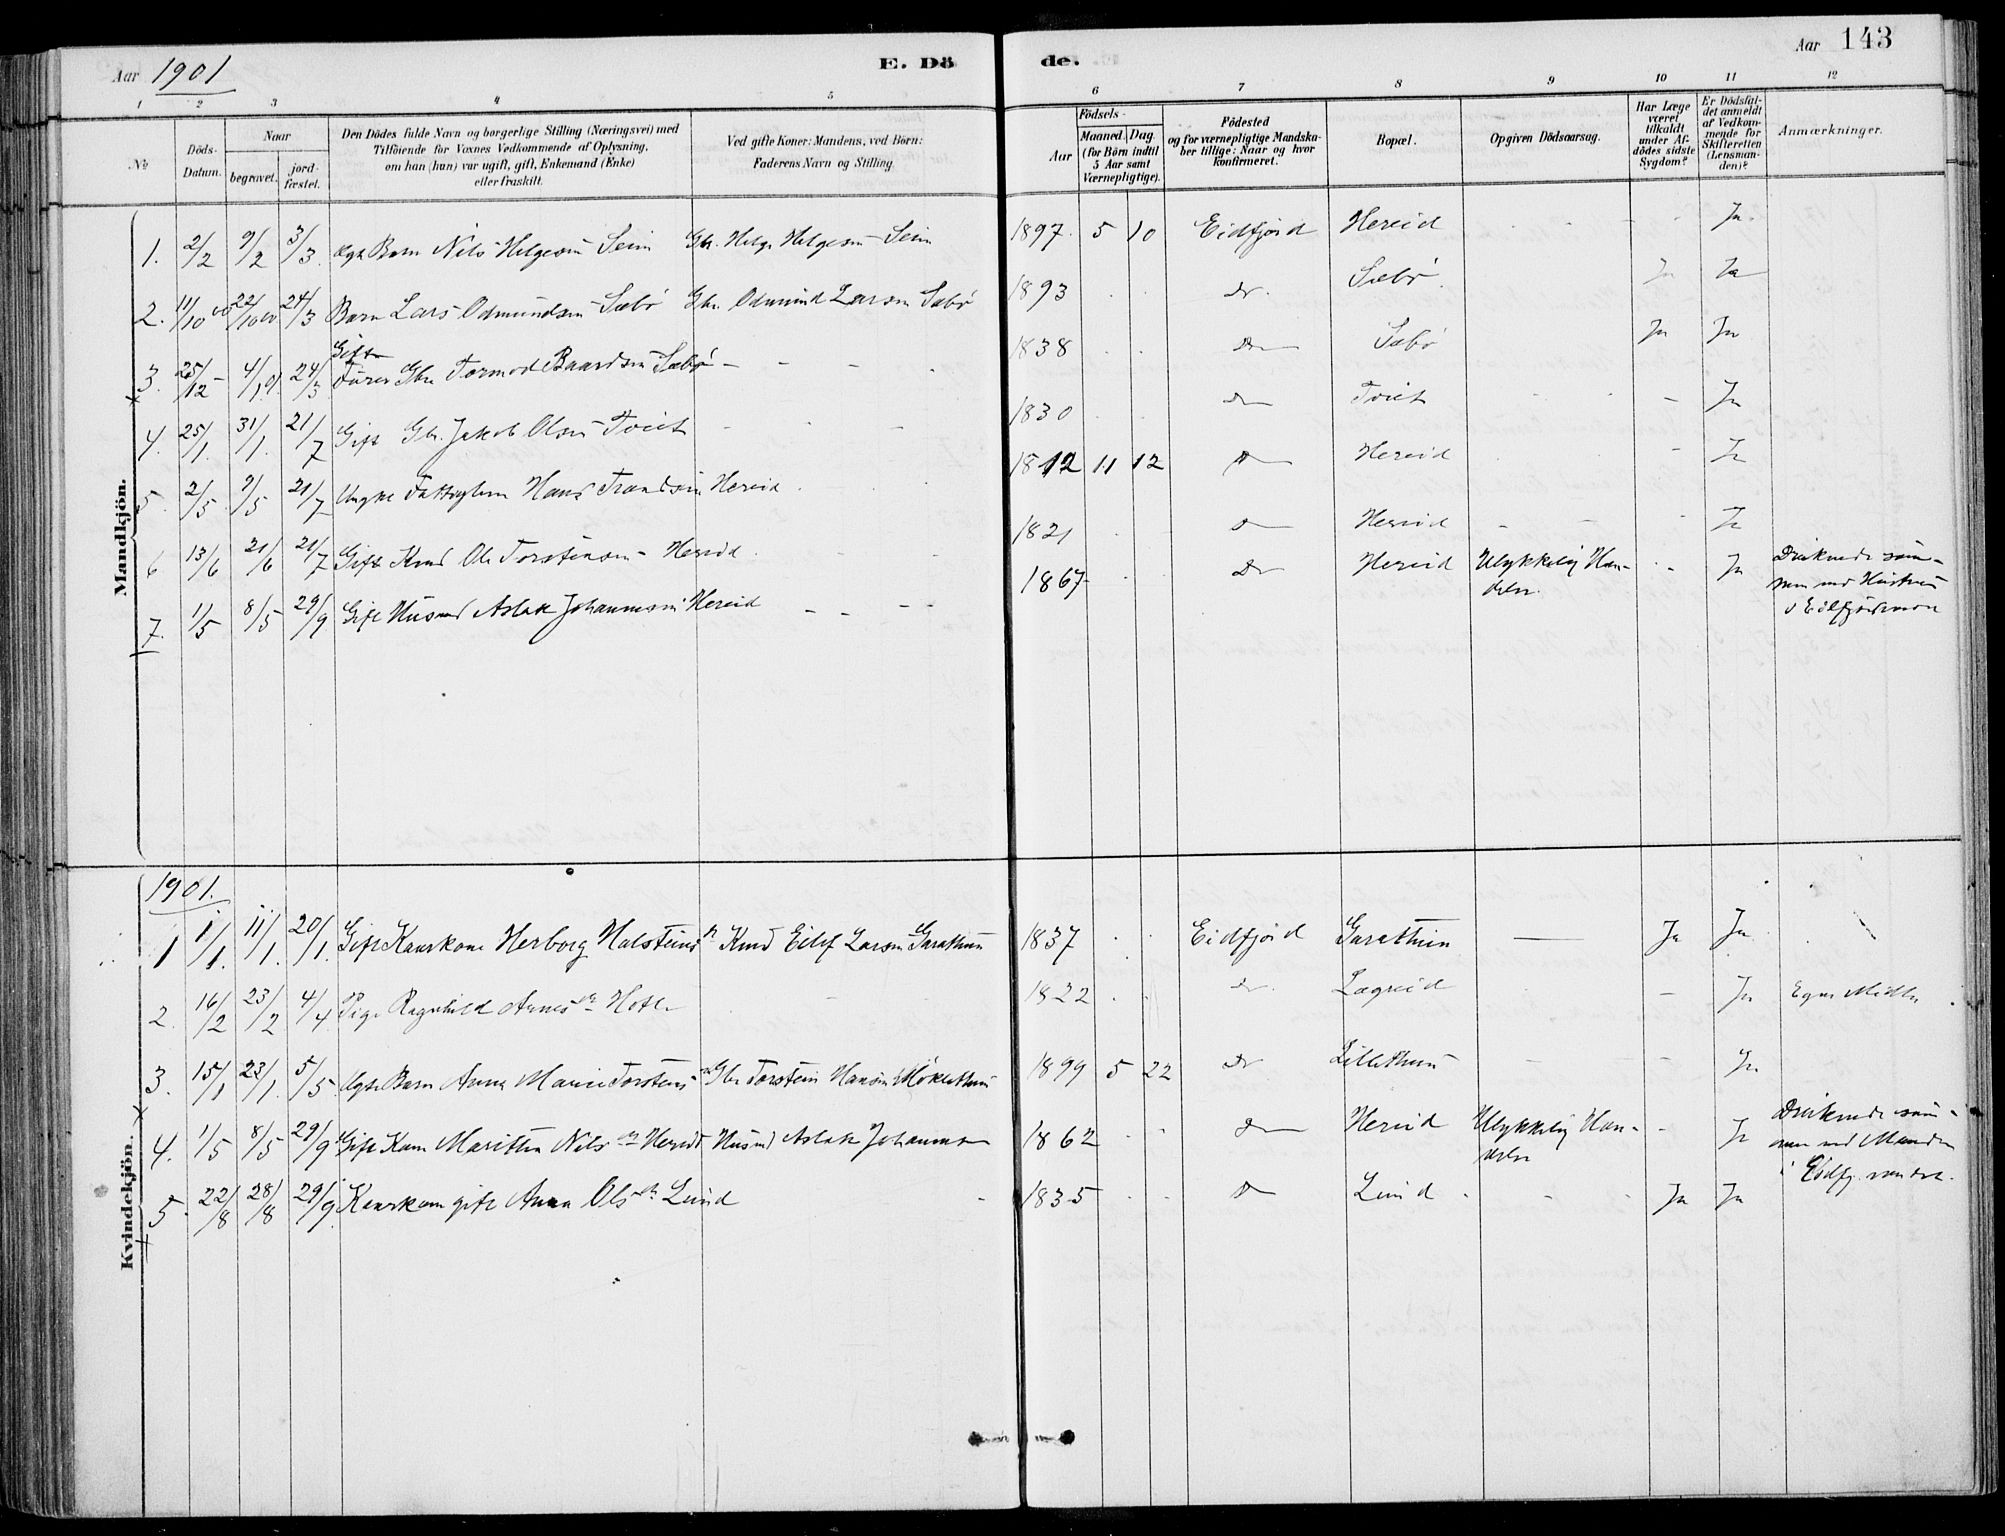 Aar 1901
E. Dö
de.
Aar 143
1 2 3 4 5 6 7 8 9 10 11 12
No
Döds-
Datum.
Naar
begravet.
jord-
fæstet.
Den Dödes fulde Navn og borgerlige Stilling (Næringsvei) med
Tilföiende for Voxnes Vedkommende af Oplysning,
om han (hun) var ugift, gift, Enkemand (Enke)
eller fraskilt.
Ved gifte Koner: Mandens, ved Börn:
Faderens Navn og Stilling.
Födsels-
Aar
Maaned. Dag.
(for Börn indtil
5 Aar samt
Værnepligtige).
Födested
og for værnepligtige Mandska-
ber tillige: Naar og hvor
konfirmeret.
Bopæl.
Opgiven Dödsaarsag.
Har Læge
været
tilkaldt
under Af-
dödes sidste
Sygdom?
Er Dödsfal-
det anmeldt
af Vedkom-
mende for
Skifteretten
(Lensman-
den)?
Anmærkninger.
Mandkjön.
1. 2/2 9/2 3/3 Barn Nils Helgesen Seim Gbr. Helge Helgesen Seim 1897. 5 10 Eidfjord Hereid Ja.
2. 11/10 00 22/10 00 24/3 Barn Lars Odmundsen Sæbö Gbr. Odmund Larsen Sæbö 1893 do. Sæbö Ja Ja
Gift
3. 25/12 4/1 01. 24/3 Gbr Tormod Baardsen Sæbö 1838 Do Sæbö Ja Ja
4. 25/1. 31/1. 21/7 Gift Gbr. Jakob Olsen Tveit 1830 Do Tveit Ja
5. 2/5 9/5 21/7 Hans Hereid 1812 11 12 Do Hereid Ja
6 13/6 21/6 21/7 Gift Ole Torstensen Hereid 1821 Do Hereid Ja
7. 1/5 8/5 29/9 Gift Husmd Aslak Johannesen Hereid 1867 Do Hereid Ulykkelig Hæn-
delse. Ja Druknede sam-
men med Hustru
i Eidfjordvandet
Kvindekjön.
1901.
1 1/1. 11/1. 20/1. Gift Herborg Halsteinsdr Eilef Larsen Garathun 1837 Eidfjord Garathun Ja Ja
2. 16/2 23/2 4/4 Pige Ragnhild Arnesdr 1822 do. Lægreid Ja
3. 15/1 23/1. 5/5. Barn Anna Marie Torsteinsdr Gbr Torstein Hansen 1899 5 22 Do Lillethun Ja
4. 1/5 8/5 29/9 Gift Kone Maritta Nilsdr Hereid Husmd Aslak Johannesen 1862 Do Hereid Ulykkelig Hæn-
delse Ja Druknede sam-
men med Manden
i Eidfj. vandet.
5. 22/8 28/8 29/9. gift Anna Olsdr Lund 1835 Do Lund Ja Ja